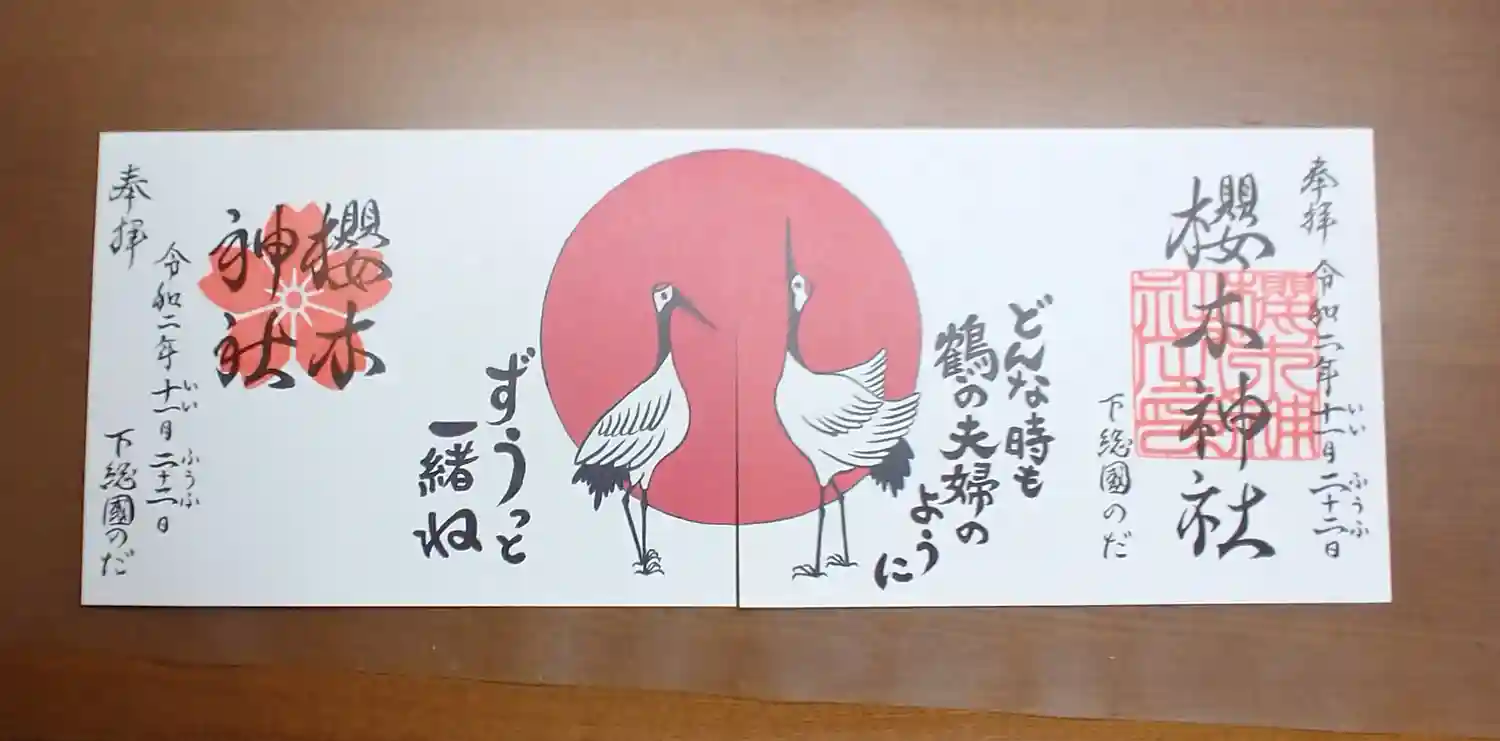 奉拝
令和二年十一月二十二日
いい
ふうふ
櫻木神社
櫻木神社之印
下総國のだ
どんな時も
鶴の夫婦の
ように
ずうっと
一緒ね
櫻木
神社
令和二年十一月二十二日
いい
ふうふ
奉拝
下総國のだ